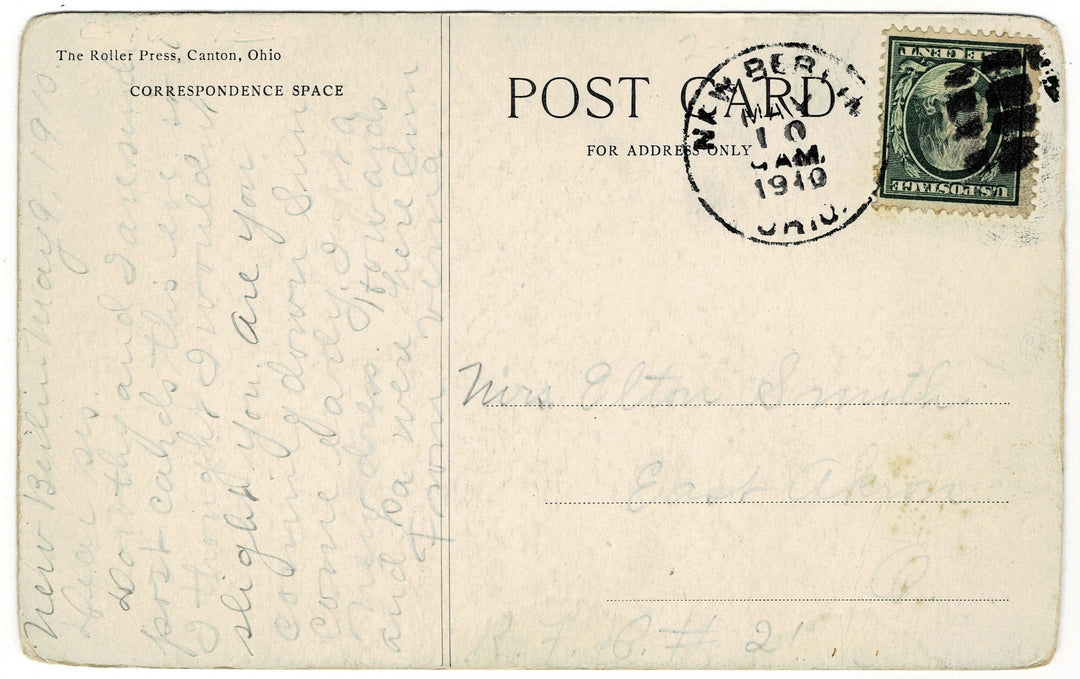 The Roller Press, Canton, Ohio
CORRESPONDENCE SPACE
POST CARD
FOR ADDRESS ONLY
NEW BERLIN
MAY
10
AM.
1910
OHIO.
ONE CENT
U.S. POSTAGE
New Berlin May 9, 1910
Dear sis.
Dorthy and I are send
post cards this eve so
I thought I wouldent
slight you. Are you
coming down Sun
come early. I got a
new dress. Howards
and Pa were here Sun
From Verna
Mrs Elton Smith.
East Akron
O.
R. F. D. # 2